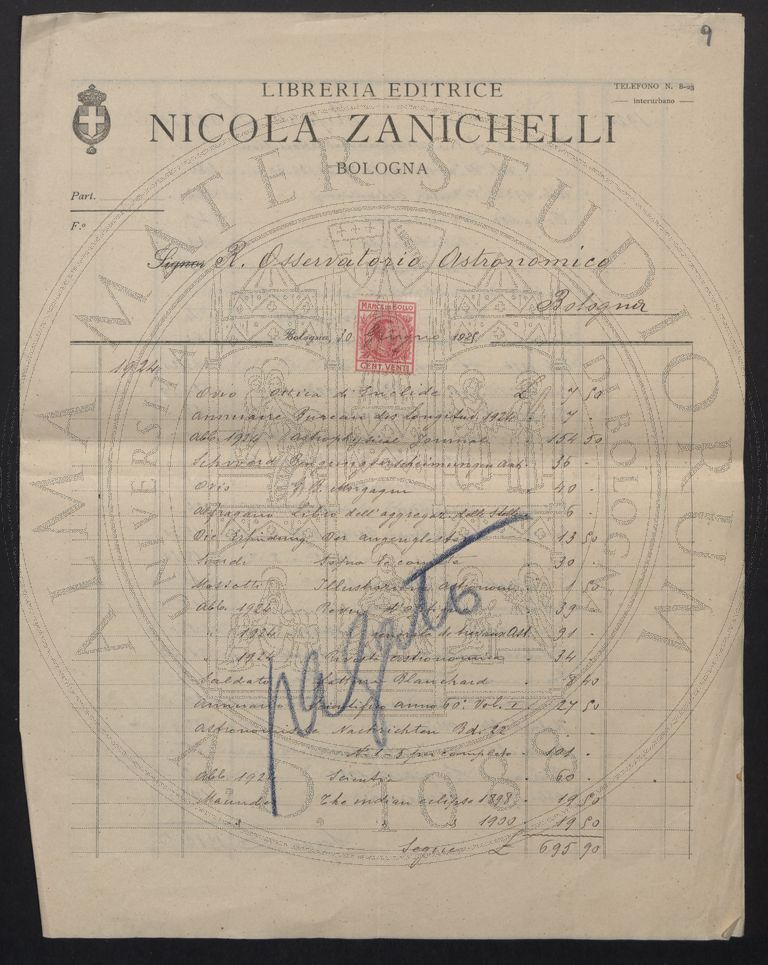 9
LIBRERIA EDITRICE
NICOLA ZANICHELLI
BOLOGNA
TELEFONO N. 8-23
interurbano
Part.
F.º
Signor R. Osservatorio Astronomico
Bologna
MARCA DA BOLLO
CENT. VENTI
Bologna, 30 Giugno 1925
1924
Ovio Ottica di Euclide £ 7 50
Annuaire Bureau des Longitud. 1924 " 7 -
Abb. 1924 Astrophysical Journal " 154 50
36 -
Ovio G. B. Morgagni " 40 -
Alfragano Libro dell'aggregaz. delle Stelle " 6 -
Die Erfindung Der 13 50
30 -
Mossotti 1 50
Abb. 1924 39 -
" 1924 91 -
" 1924 Rivista Astronomica " 34 -
Saldato fattura Blanchard " 8 40
Annuario Scientifico anno 60º Vol. I " 27 50
Astronomische Nachrichten Bd. 22
N. 1-5 per completo " 101 -
Abb. 1924 Scientia " 60 -
Maunder The indian eclipse 1898 " 19 50
" " " 1900 " 19 50
Segue £ 695 90
pagato
ALMA MATER STUDIORUM
UNIVERSITÀ DI BOLOGNA
A.D. 1088